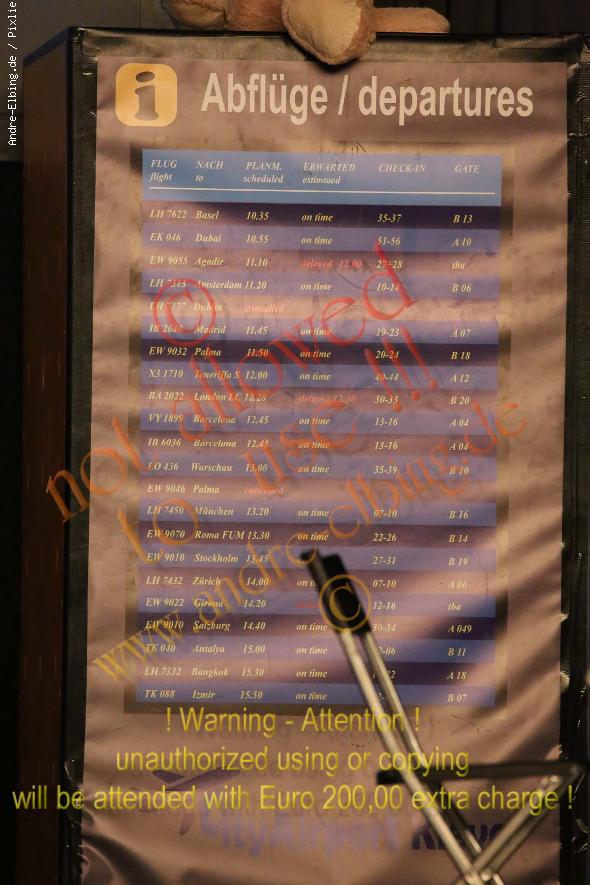 Andre-Elbing.de / Pixlie
i Abflüge / departures
FLUG NACH PLANM. ERWARTED CHECK-IN GATE
flight to scheduled estimtaed
LH 7622 Basel 10.35 on time 35-37 B 13
EK 046 Dubai 10.55 on time 51-56 A 10
EW 9055 Agadir 11.10 delayed 12.00 27-28 tba
LH 7313 Amsterdam 11.20 on time 10-14 B 06
LH 7377 Dublin cancelled
IB 2640 Madrid 11.45 on time 19-23 A 07
EW 9032 Palma 11.50 on time 20-24 B 18
X3 1710 Teneriffa S 12.00 on time 40-44 A 12
BA 2022 London LC 12.20 delayed 12.50 30-33 B 20
VY 1899 Barcelona 12.45 on time 13-16 A 04
IB 6036 Barcelona 12.45 on time 13-16 A 04
LO 436 Warschau 13.00 on time 35-39 B 10
EW 9046 Palma cancelled
LH 7450 München 13.20 on time 07-10 B 16
EW 9070 Roma FUM 13.30 on time 22-26 B 14
EW 9010 Stockholm 13.45 27-31 B 19
LH 7432 Zürich 14.00 on time 07-10 A 06
EW 9022 Girona 14.20 12-16 tba
EW 9010 Salzburg 14.40 on time 30-34 A 049
TK 040 Antalya 15.00 on time B 11
LH 7332 Bangkok 15.30 on time A 18
TK 088 Izmir 15.50 on time B 07
© not allowed
to use !!!
www.andre-elbing.de ©
! Warning - Attention !
unauthorized using or copying
will be attended with Euro 200,00 extra charge !
CityAirport